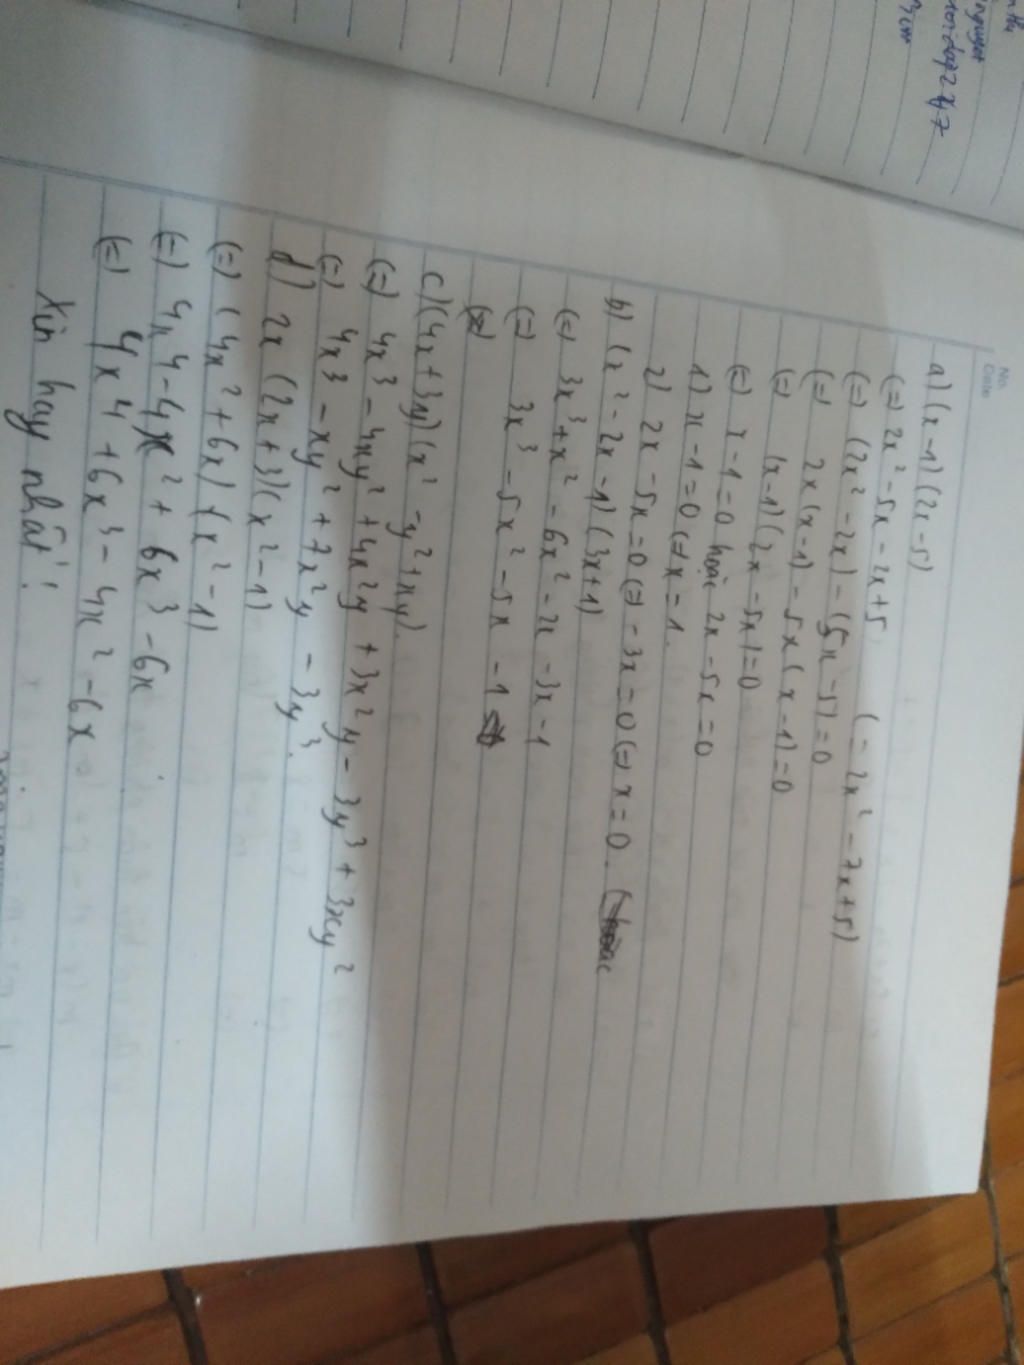 No.
Date
a) (x - 1)(2x - 5)
(=) 2x² - 5x - 2x + 5 (= 2x² - 7x + 5)
(=) (2x² - 2x) - (5x - 5) = 0
(=) 2x(x - 1) - 5x(x - 1) = 0
(=) (x - 1)(2x - 5x) = 0
(=) x - 1 = 0 hoặc 2x - 5x = 0
1) x - 1 = 0 (=) x = 1.
2) 2x - 5x = 0 (=) - 3x = 0 (=) x = 0.
b) (x² - 2x - 1)(3x + 1)
(=) 3x³ + x² - 6x² - 2x - 3x - 1
(=) 3x³ - 5x² - 5x - 1
c) (4x + 3y)(x² - y² + xy).
(=) 4x³ - 4xy² + 4x²y + 3x²y - 3y³ + 3xy²
(=) 4x³ - xy² + 7x²y - 3y³.
d) 2x (2x + 3)(x² - 1)
(=) (4x² + 6x) (x² - 1)
(=) 4x4 - 4x² + 6x³ - 6x
(=) 4x4 + 6x³ - 4x² - 6x
Xin hay nhất!